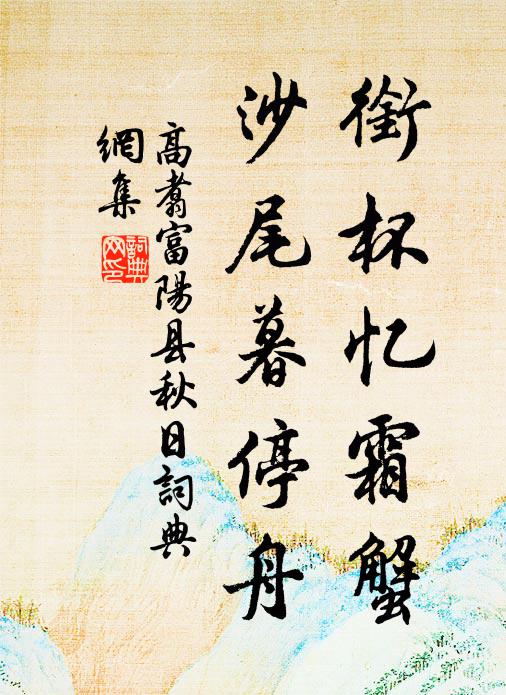 銜杯忆霜蟹
沙尾暮停舟
高翥富陽县秋日詞典
網集
詞典
网印